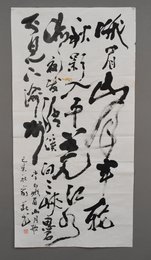 峨眉山月半輪
秋影入平羌江水
流夜發清溪向三峽思君
不見下渝州
李白峨眉山月歌